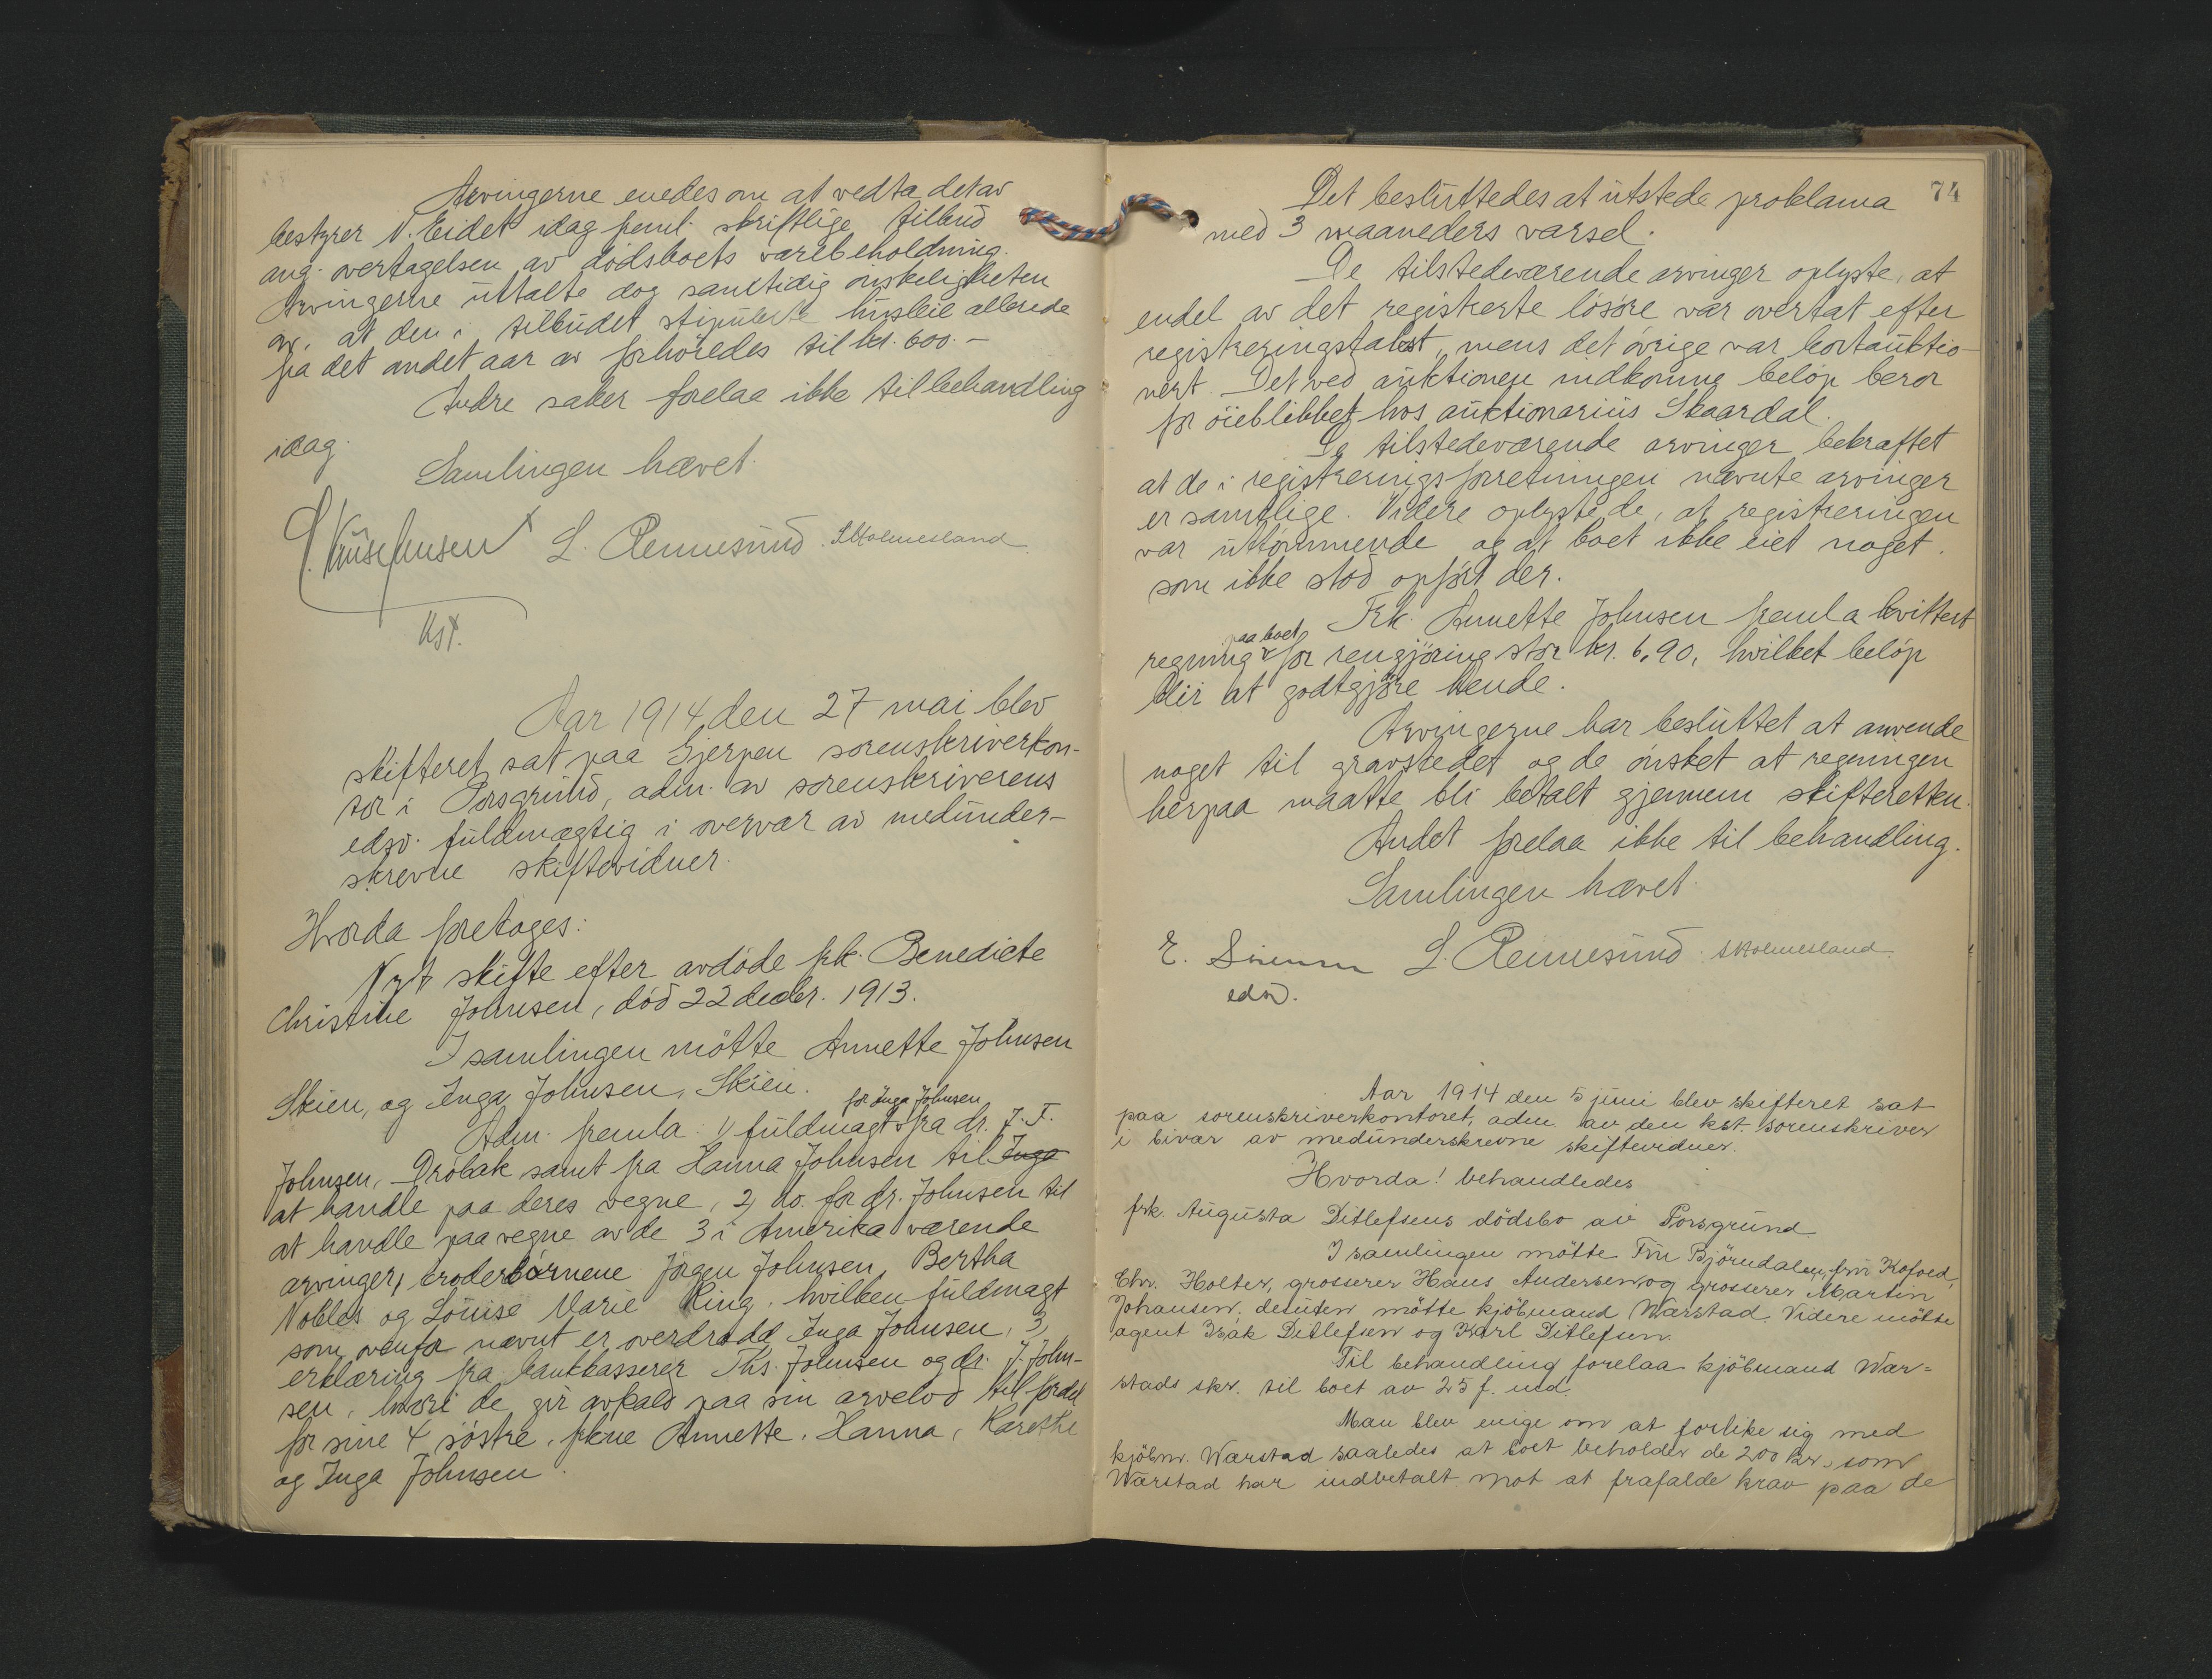 Arvingerne enedes om at vedta det av
bestyrer N. Eidet idag freml. skriftlige tilbud
ang. overtagelsen av dödsboets varebeholdning.
Arvingerne uttalte dog samtidig önskeligheten
av, at den i tilbudet stipulerte husleie allerede
fra det andet aar av forhöiedes til kr. 600.-
Andre saker forelaa ikke til behandling
idag.
Samlingen hævet.
L. Rennesund. SHolmesland
kst.
Aar 1914 den 27 mai blev
skifteret sat paa Gjerpen sorenskriverkon-
tor i Porsgrund, adm. av sorenskriverens
edsv. fuldmægtig i overvær av medunder-
skrevne skiftevidner.
Hvorda foretoges:
Nyt skifte efter avdöde frk. Benedicte
Christine Johnsen, död 22 decbr. 1913.
I samlingen mötte Annette Johnsen
Skien, og Inga Johnsen, Skien.
for Inga Johnsen
Adm. fremla: 1) fuldmagt fra dr. J. F.
Johnsen, Dröbak samt fra Hanna Johnsen til Inga
at handle paa deres vegne, 2) do. for dr. Johnsen til
at handle paa vegne av de 3 i Amerika værende
arvinger, broderbörnene Jörgen Johnsen, Bertha
Nobles og Louise Marie Ring, hvilken fuldmagt
som ovenfor nævnt er overdradd Inga Johnsen, 3)
erklæring fra bankkasserer Ths. Johnsen og dr. J. John-
sen, hvori de gir avkald paa sin arvelod til fordel
for sine 4 söstre, frkne Annette, Hanna, Karethe
og Inga Johnsen.
74
Det besluttedes at utstede proklama
med 3 maaneders varsel.
De tilstedeværende arvinger oplyste, at
endel av det registrerte lösöre var overtat efter
registreringstakst, mens det övrige var bortauktio-
nert. Det ved auktionen indkomne belöp beror
for öieblikket hos auktionarius Skaardal.
De tilstedeværende arvinger bekræftet
at de i registreringsforretningen nævnte arvinger
er samtlige. Videre oplyste de, at registreringen
var uttömmende og at boet ikke eiet noget,
som ikke stod opfört der.
Frk. Annette Johnsen fremla kvittert
paa boet
regning for rengjöring stor kr. 6,90, hvilket belöp
blir at godtgjöre hende.
Arvingerne har besluttet at anvende
noget til gravstedet og de önsket at regningen
herpaa maatte bli betalt gjennem skifteretten.
Andet forelaa ikke til behandling.
Samlingen hævet.
E. L. Rennesund. SHolmesland
edsv.
Aar 1914 den 5 juni blev skifteret sat
paa sorenskriverkontoret, adm. av den kst. sorenskriver
i bivær av medunderskrevne skiftevidner.
Hvorda! behandledes
frk. Augusta Ditlefsens dödsbo av Porsgrund
I samlingen mötte Fru Björndalen, fru Kofoed,
Chr. Holter, grosserer Hans Andersen og grosserer Martin
Johansen. desuten mötte kjöbmand Wærstad. Videre mötte
agent Isak Ditlefsen og Karl Ditlefsen.
Til behandling forelaa kjöbmand Wær=
stads skr. til boet av 25 f. md.
Man blev enige om at forlike sig med
kjöbm. Wærstad saaledes at boet beholder de 200 kr. som
Wærstad har indbetalt mot at frafalde krav paa de